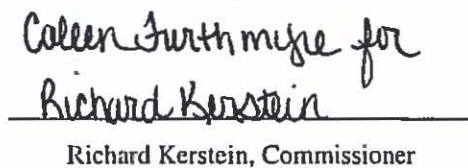 Coleen Furthmyre for
Richard Kerstein
Richard Kerstein, Commissioner